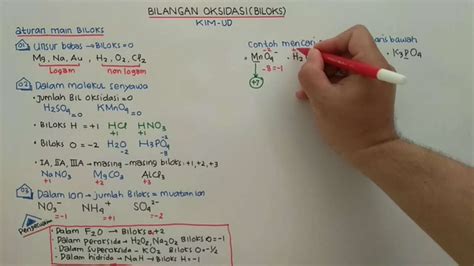 BILANGAN OKSIDASI (BILOKS)
KIM-UD
aturan main BILOKS
01 Unsur bebas → BILOKS = 0
Mg, Na, Au, H₂, O₂, Cl₂
logam non logam
02 Dalam molekul senyawa
• jumlah Bil oksidasi = 0
H₂SO₄ = 0 KMnO₄ = 0
• BILOKS H = +1 HCl HNO₃
+1 +1
• BILOKS O = -2 H₂O H₃PO₄
-2 -2
• IA, IIA, IIIA → masing-masing biloks: +1, +2, +3
NaNO₃ MgCO₃ AlCl₃
+1 +2 +3
03 Dalam ion → jumlah Biloks = muatan ion
NO₃⁻ NH₄⁺ SO₄²⁻
= -1 = +1 = -2
Pengecualian
• Dalam F₂O → BILOKS O = +2
• Dalam peroksida → H₂O₂, Na₂O₂ BILOKS O = -1
• Dalam superoksida - KO₂ BILOKS O = -½
• Dalam hidrida → NaH → BILOKS H = -1
Contoh mencari
garis bawah
-2
• MnO₄⁻ • H₂ • K₃PO₄
-8 = -1
+7